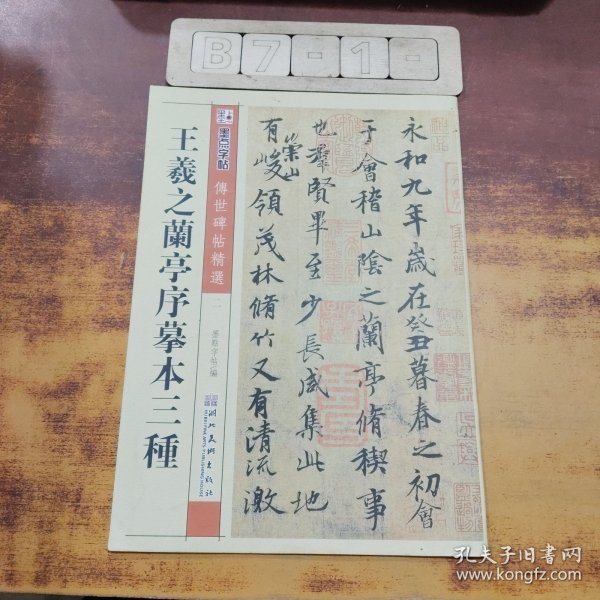 B7-1-
墨点字帖
傳世碑帖精選
二
墨點字帖 編
王羲之蘭亭序摹本三種
湖北美術出版社
HUBEI FINE ARTS PUBLISHING HOUSE
永和九年歲在癸丑暮春之初會
于會稽山陰之蘭亭脩稧事
也羣賢畢至少長咸集此地
有崇山峻領茂林脩竹又有清流激
孔夫子旧书网
www.kongfz.com